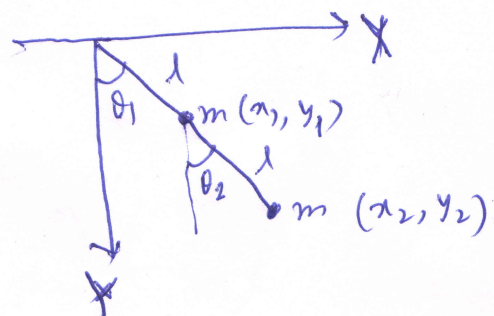 X
l
θ₁
m (x₁, y₁)
l
θ₂
m (x₂, y₂)
Y